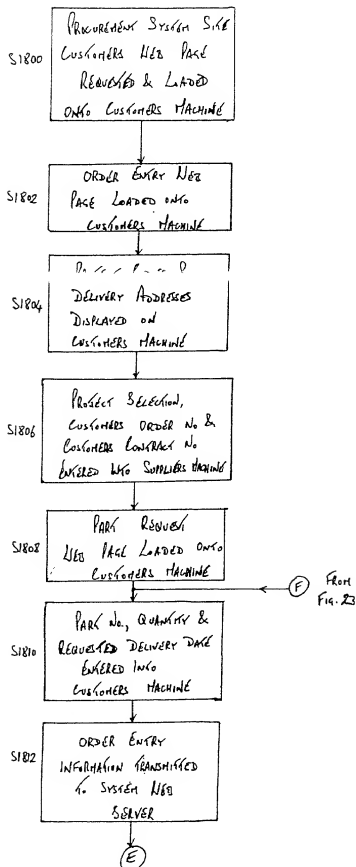 S1800
PROCUREMENT SYSTEM SITE
CUSTOMERS WEB PAGE
REQUESTED & LOADED
ONTO CUSTOMERS MACHINE
S1802
ORDER ENTRY WEB
PAGE LOADED ONTO
CUSTOMERS MACHINE
S1804
DELIVERY ADDRESSES
DISPLAYED ON
CUSTOMERS MACHINE
S1806
PROJECT SELECTION,
CUSTOMERS ORDER NO &
CUSTOMERS CONTRACT NO
ENTERED INTO SUPPLIERS MACHINE
S1808
PART REQUEST
WEB PAGE LOADED ONTO
CUSTOMERS MACHINE
F FROM
FIG. 23
S1810
PART NO., QUANTITY &
REQUESTED DELIVERY DATE
ENTERED INTO
CUSTOMERS MACHINE
S1812
ORDER ENTRY
INFORMATION TRANSMITTED
TO SYSTEM WEB
SERVER
E